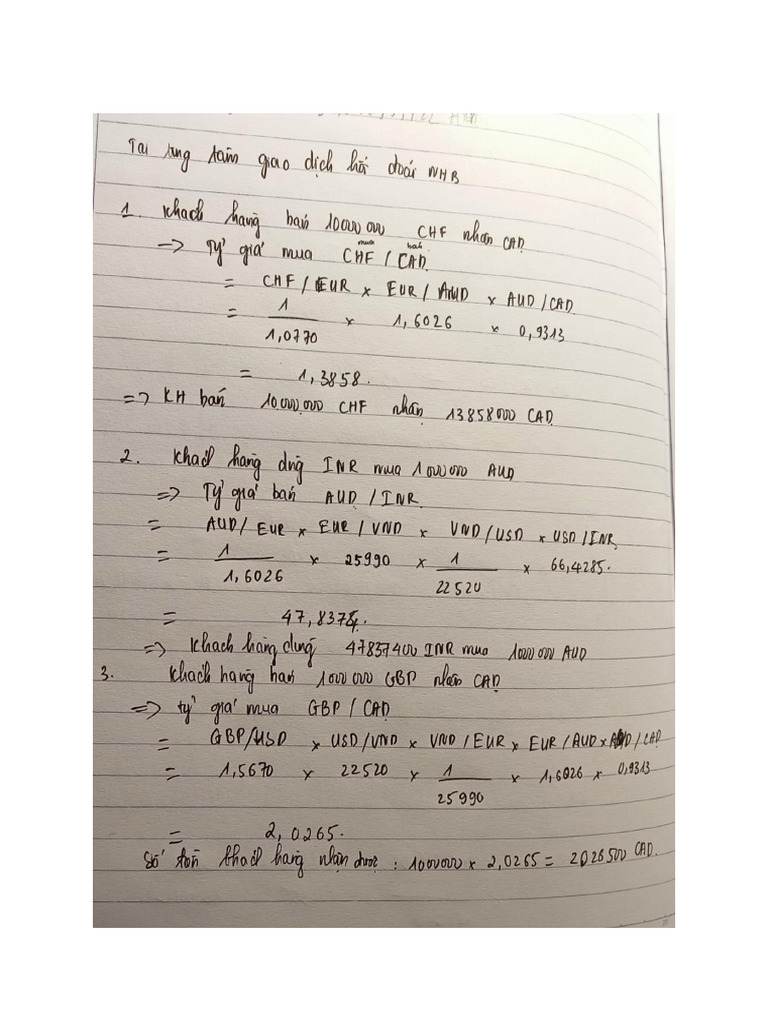 Tại trung tâm giao dịch hối đoái NHB
1. Khách hàng bán 10000 000 CHF nhận CAD
mua bán
=> Tỷ giá mua CHF / CAD
= CHF / EUR x EUR / AUD x AUD / CAD
= 1 / 1,0770 x 1,6026 x 0,9313
= 1,3858.
=> KH bán 10000,000 CHF nhận 13858000 CAD
2. Khách hàng dùng INR mua 1000000 AUD
=> Tỷ giá bán AUD / INR.
= AUD / EUR x EUR / VND x VND / USD x USD / INR
= 1 / 1,6026 x 25990 x 1 / 22520 x 66,4285.
= 47,8374.
=> Khách hàng dùng 47837400 INR mua 1000 000 AUD
3. Khách hàng bán 1000 000 GBP nhận CAD
=> tỷ giá mua GBP / CAD
= GBP/USD x USD / VND x VND / EUR x EUR / AUD x AUD / CAD
= 1,5670 x 22520 x 1 / 25990 x 1,6026 x 0,9313
= 2,0265.
Số tiền khách hàng nhận được : 1000000 x 2,0265 = 2026500 CAD.